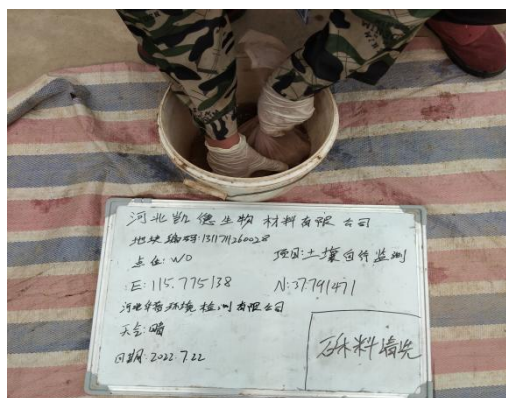 河北凯德生物材料有限公司
地块编码:1311711260028
点位: W0 项目:土壤自行监测
E: 115.775138 N:37.791471
河北华荀环境检测有限公司
天气:晴
日期:2022.7.22
砾料墙洗